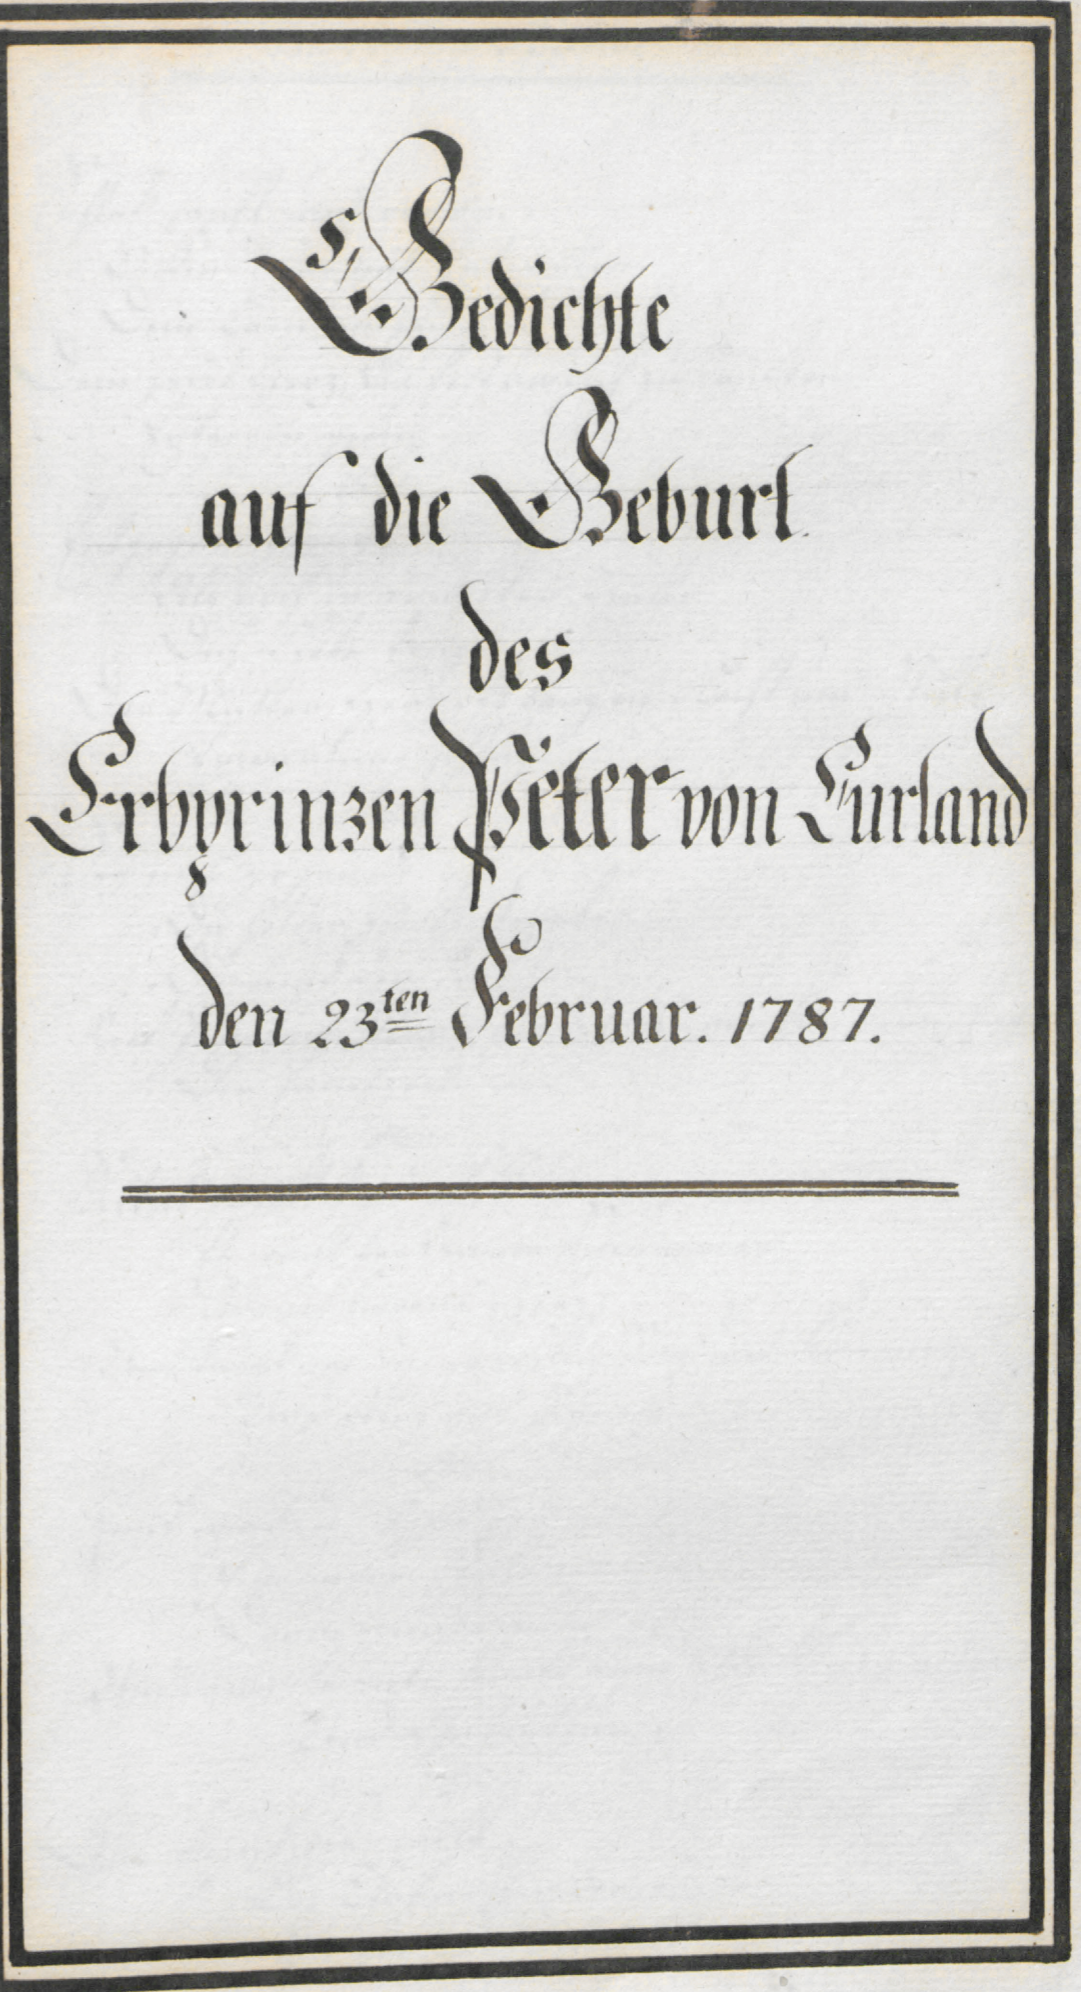 Gedichte
auf die Geburt.
des
Erbprinzen Peter von Curland
den 23ten Februar. 1787.